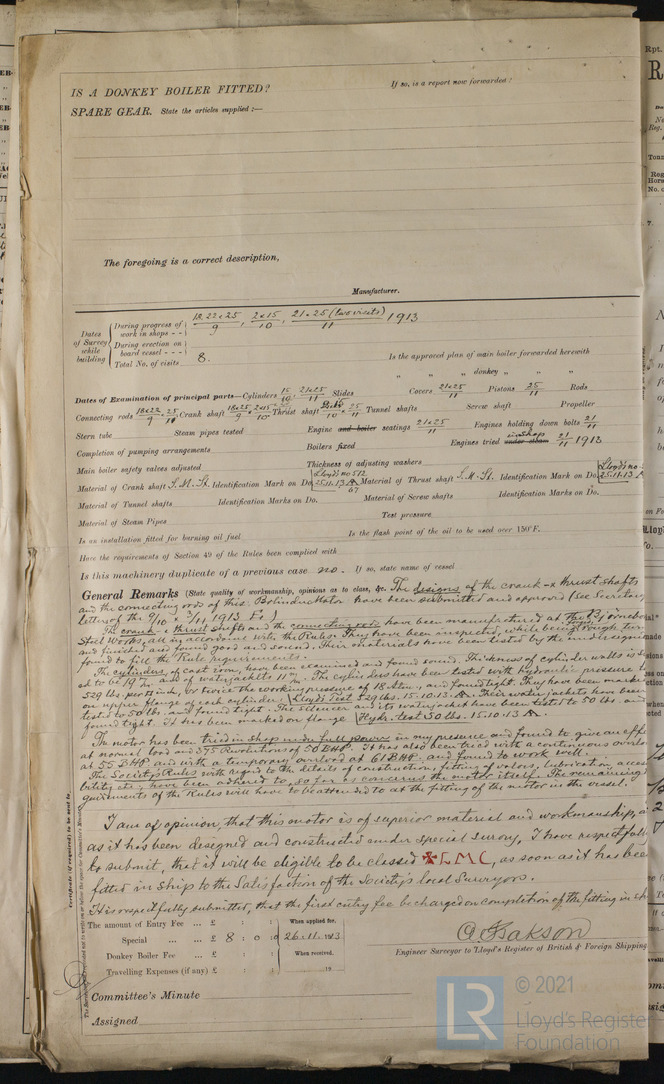 IS A DONKEY BOILER FITTED? If so, is a report now forwarded?
SPARE GEAR. State the articles supplied :—
The foregoing is a correct description,
Manufacturer.
Dates of Survey while building
During progress of work in shops - - 18.22.25/9, 2.15/10, 21.25 (two visits)/11 1913
During erection on board vessel - - -
Total No. of visits 8. Is the approved plan of main boiler forwarded herewith
" " " donkey " " "
Dates of Examination of principal parts—Cylinders 15/10 21.25/11 Slides Covers 21.25/11 Pistons 25/11 Rods
Connecting rods 18.22/9 25/11 Crank shaft 18.25/9 2.15/10 Thrust shaft 25/11 Tunnel shafts Screw shaft Propeller
Stern tube Steam pipes tested Engine and boiler seatings 21.25/11 Engines holding down bolts 21/11
Completion of pumping arrangements Boilers fixed Engines tried under steam in shops 21/11 1913
Main boiler safety valves adjusted Thickness of adjusting washers
Material of Crank shaft S.M.St. Identification Mark on Do. Lloyd's no 512 25.11.13 Material of Thrust shaft S.M.St. Identification Mark on Do. Lloyd's no 25.11.13
Material of Tunnel shafts Identification Marks on Do. Material of Screw shafts Identification Marks on Do.
Material of Steam Pipes Test pressure
Is an installation fitted for burning oil fuel Is the flash point of the oil to be used over 150°F.
Have the requirements of Section 49 of the Rules been complied with
Is this machinery duplicate of a previous case no. If so, state name of vessel
General Remarks (State quality of workmanship, opinions as to class, &c. The designs of the crank- & thrust shafts
and the connecting rods of this Bolinder motor have been submitted and approved (see Secretary
letters of the 9/10 & 3/11 1913 E.)
The crank & thrust shafts and the connecting rods have been manufactured at
Steel Works, all in accordance with the Rules. They have been inspected, while being rough turned
and finished and found good and sound. Their materials have been tested by the undersigned
found to fill the Rule requirements.
The cylinders, of cast iron, have been examined and found sound. Thickness of cylinder walls is
and of waterjackets 11 m/m. The cylinders have been tested with hydraulic pressure
529 lbs. per sq. inch, or twice the working pressure of 18 atm., and found tight. They have been marked
on upper flange of each cylinder: Lloyd's Test 529 lbs. 15.10.13. Their waterjackets have been
tested to 50 lbs. and found tight. The silencer and its waterjacket have been tested to 50 lbs. and
found tight. It has been marked on flange Hydr. test 50 lbs. 15.10.13.
The motor has been tried in shop under full power in my presence and found to give an effect
at normal load and 375 Revolutions of 50 BHP. It has also been tried with a continuous overload
at 55 BHP and with a temporary overload at 61 BHP and found to work well.
The Society's Rules with regard to the details of construction, fitting of valves, lubrication, access
bility etc., have been adhered to, so far as concerns the motor itself. The remaining
quirements of the Rules will have to be attended to at the fitting of the motor in the vessel.
I am of opinion, that this motor is of superior material and workmanship, a
as it has been designed and constructed under special survey, I have respectfully
to submit, that it will be eligible to be classed ✠LMC, as soon as it has been
fitted in ship to the Satisfaction of the Society's local Surveyors.
It is respectfully submitted, that the first entry fee be charged on completion of the fitting in ship
The amount of Entry Fee ... £ : : When applied for,
Special ... ... £ 8 : 0 : 0 26.11.1913
Donkey Boiler Fee ... £ : : When received,
Travelling Expenses (if any) £ : : 19
Engineer Surveyor to Lloyd's Register of British & Foreign Shipping
Committee's Minute
Assigned
Certificate (if required) to be sent to
LR © 2021
Lloyd's Register
Foundation